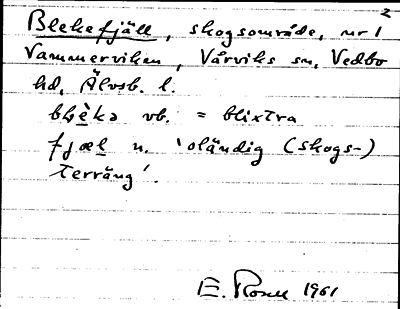 2
Blekefjäll, skogsområde, nr 1
Vammerviken, Vårviks sn, Vedbo
hd, Älvsb. l.
blèkə vb. = blixtra
fjæl n. 'oländig (skogs-)
terräng'.
E. 1961